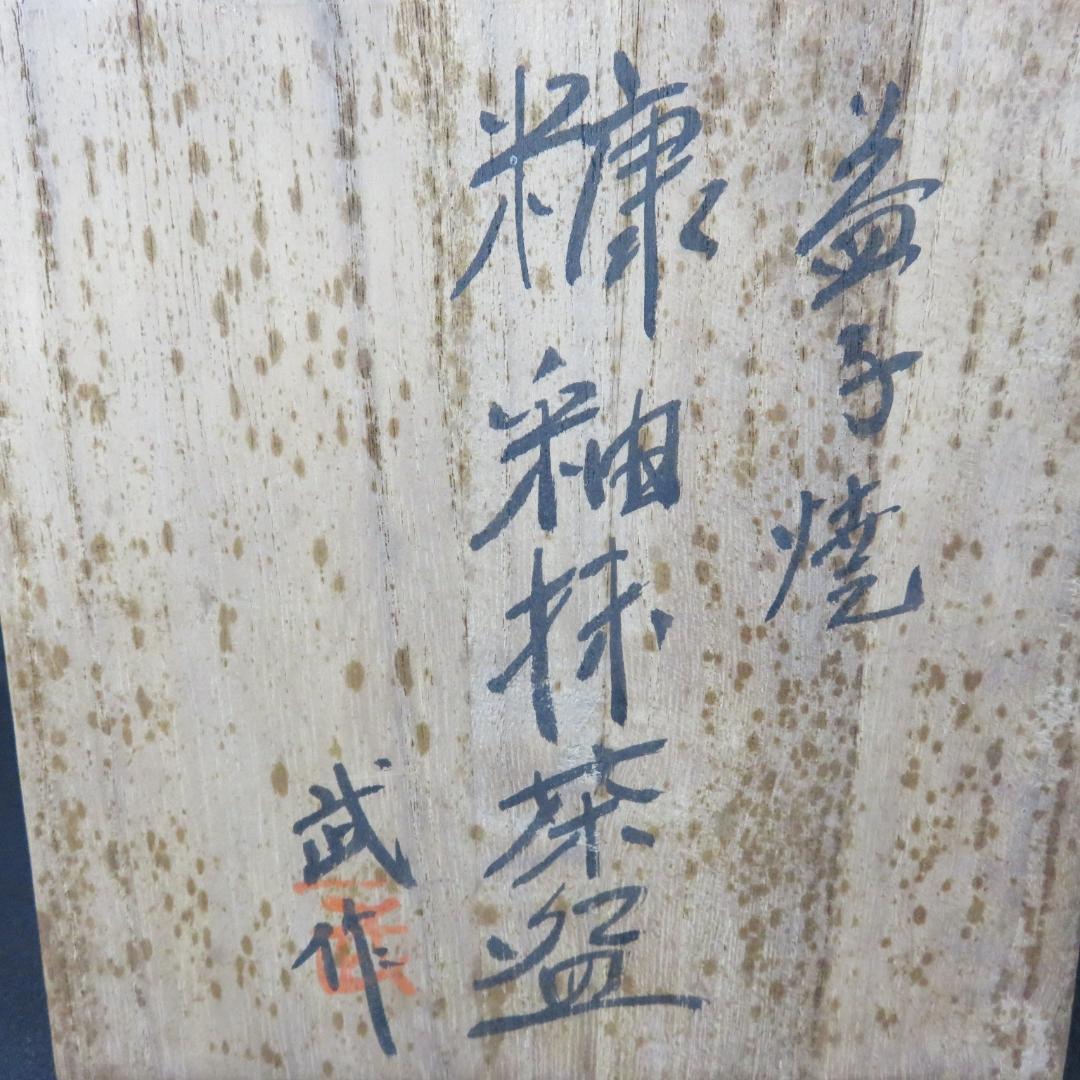 益子焼
糠釉抹茶盌
武作